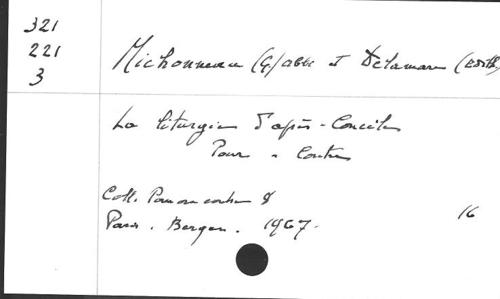 321
221
3
Michonneau (G) abbé et Delamare (Edith)
La liturgie d'après-Concile
Pour - Contre
Coll. Pour ou contre 8
Paris. Berger. 1967.
16